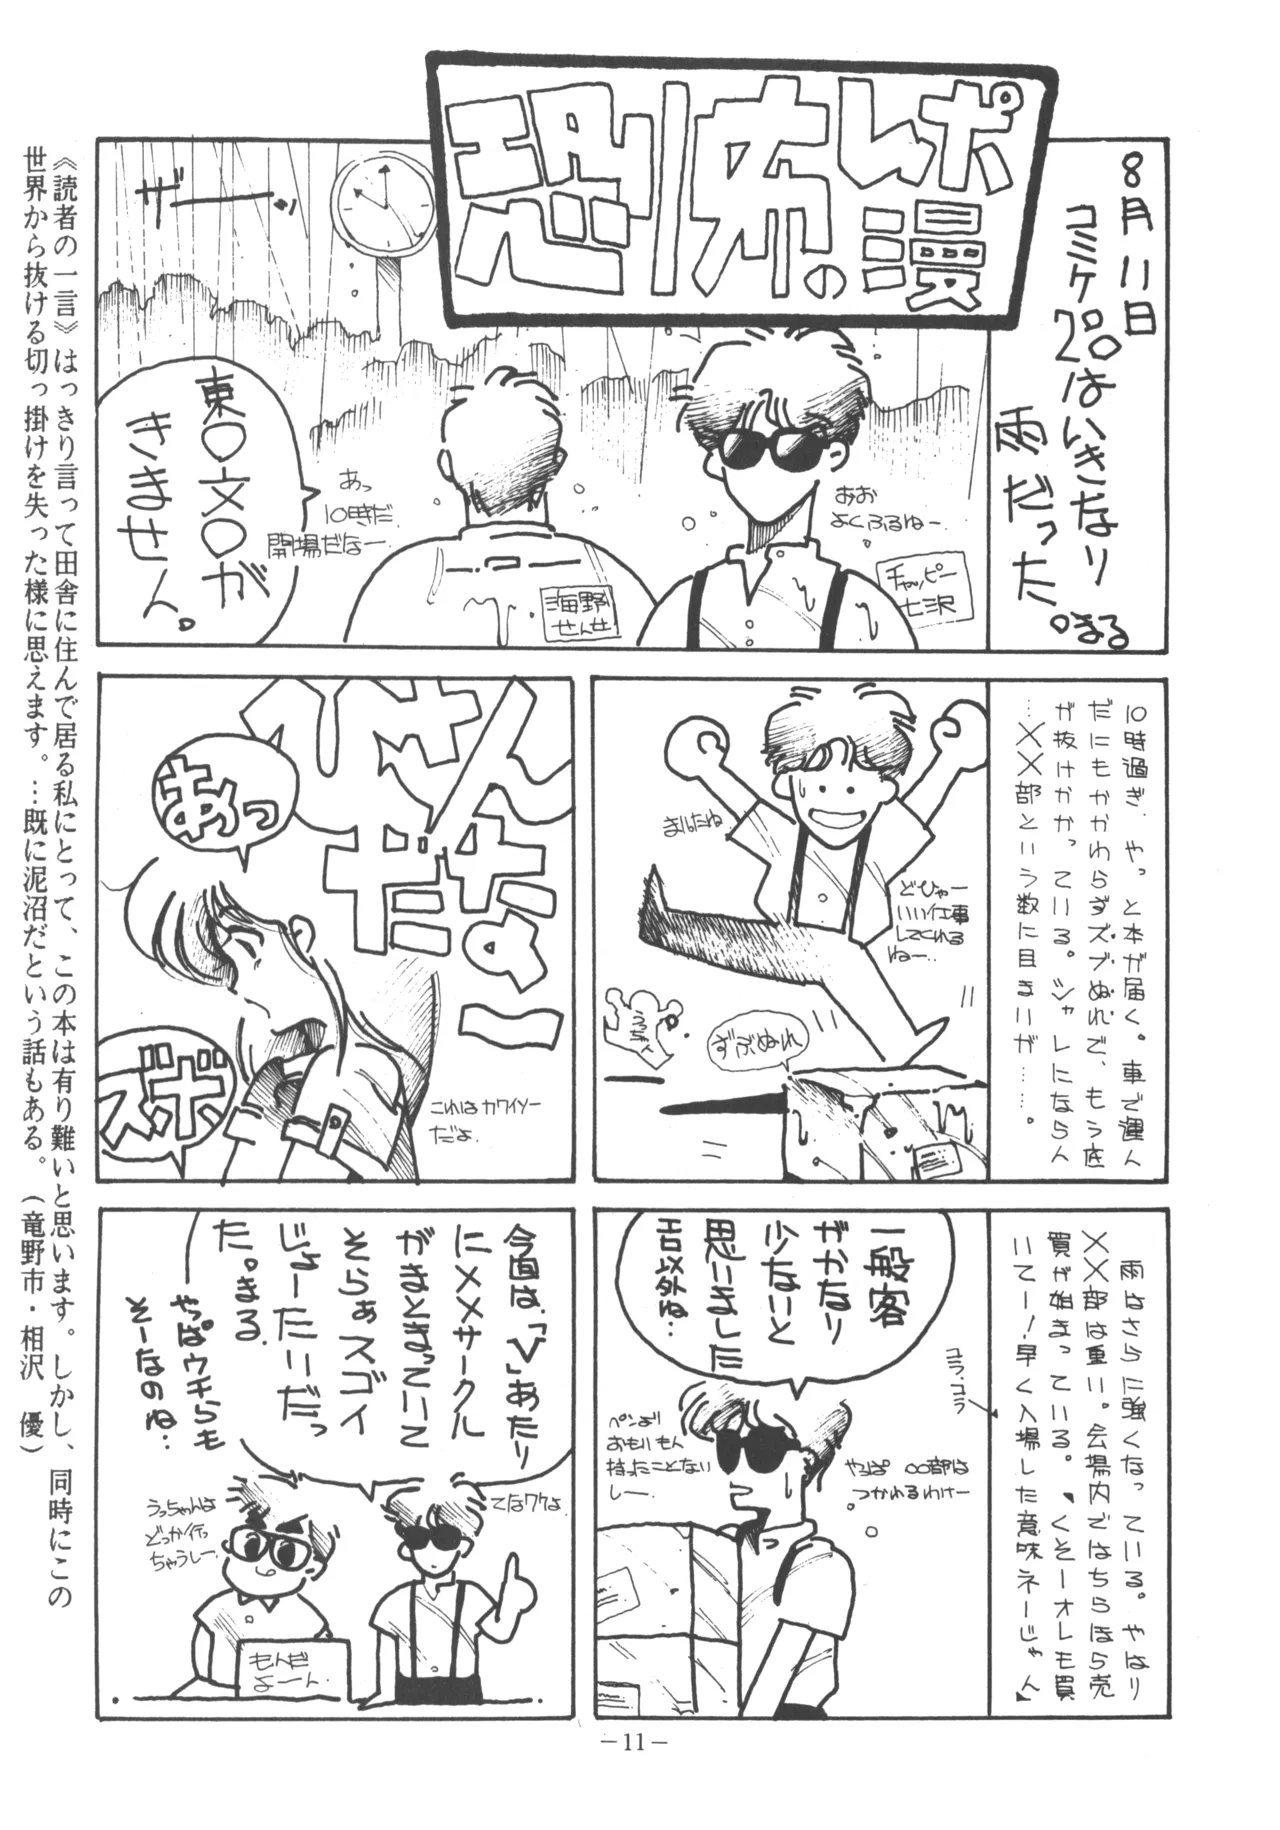 恐怖の
レポ漫
8月11日
コミケ20はいきなり
雨だった。まる
ザーッ
おお
よくふるねー
チャッピー
七沢
海野
せんせ
あっ
10時だ
開場だなー
東〇文〇が
きません。
10時過ぎ、やっと本が届く。車で運ん
だにもかかわらずズブぬれで、もう底
が抜けかかっている。シャレにならん
…××部という数に目まいが……。
まいたね
どひゃー
いい仕事
してくれる
ねー..
ずぶぬれ
せんせ
なー
あっ
ズボ
これはカワイソー
だよ.
雨はさらに強くなっている。やはり
××部は重い。会場内ではちらほら売
買が始まっている。“くそーオレも買
いてー!早く入場した意味ネーじゃん”
コラ、コラ
一般客
がかなり
少ないと
思いました
エロ以外ね…
ペンより
おもいもん
持ったことない
しー.
やっぱ〇〇部は
つかれるわけー
今回は、「V」あたり
に××サークル
がまとまっていて
そらぁスゴイ
じょーたいだっ
た。まる.
やっぱウチらも
そーなのね..
てなワケよ
うっちゃんは
どっか行っ
ちゃうしー.
もんだ
よーん
《読者の一言》はっきり言って田舎に住んで居る私にとって、この本は有り難いと思います。しかし、同時にこの
世界から抜ける切っ掛けを失った様に思えます。…既に泥沼だという話もある。(竜野市・相沢 優)
－11－